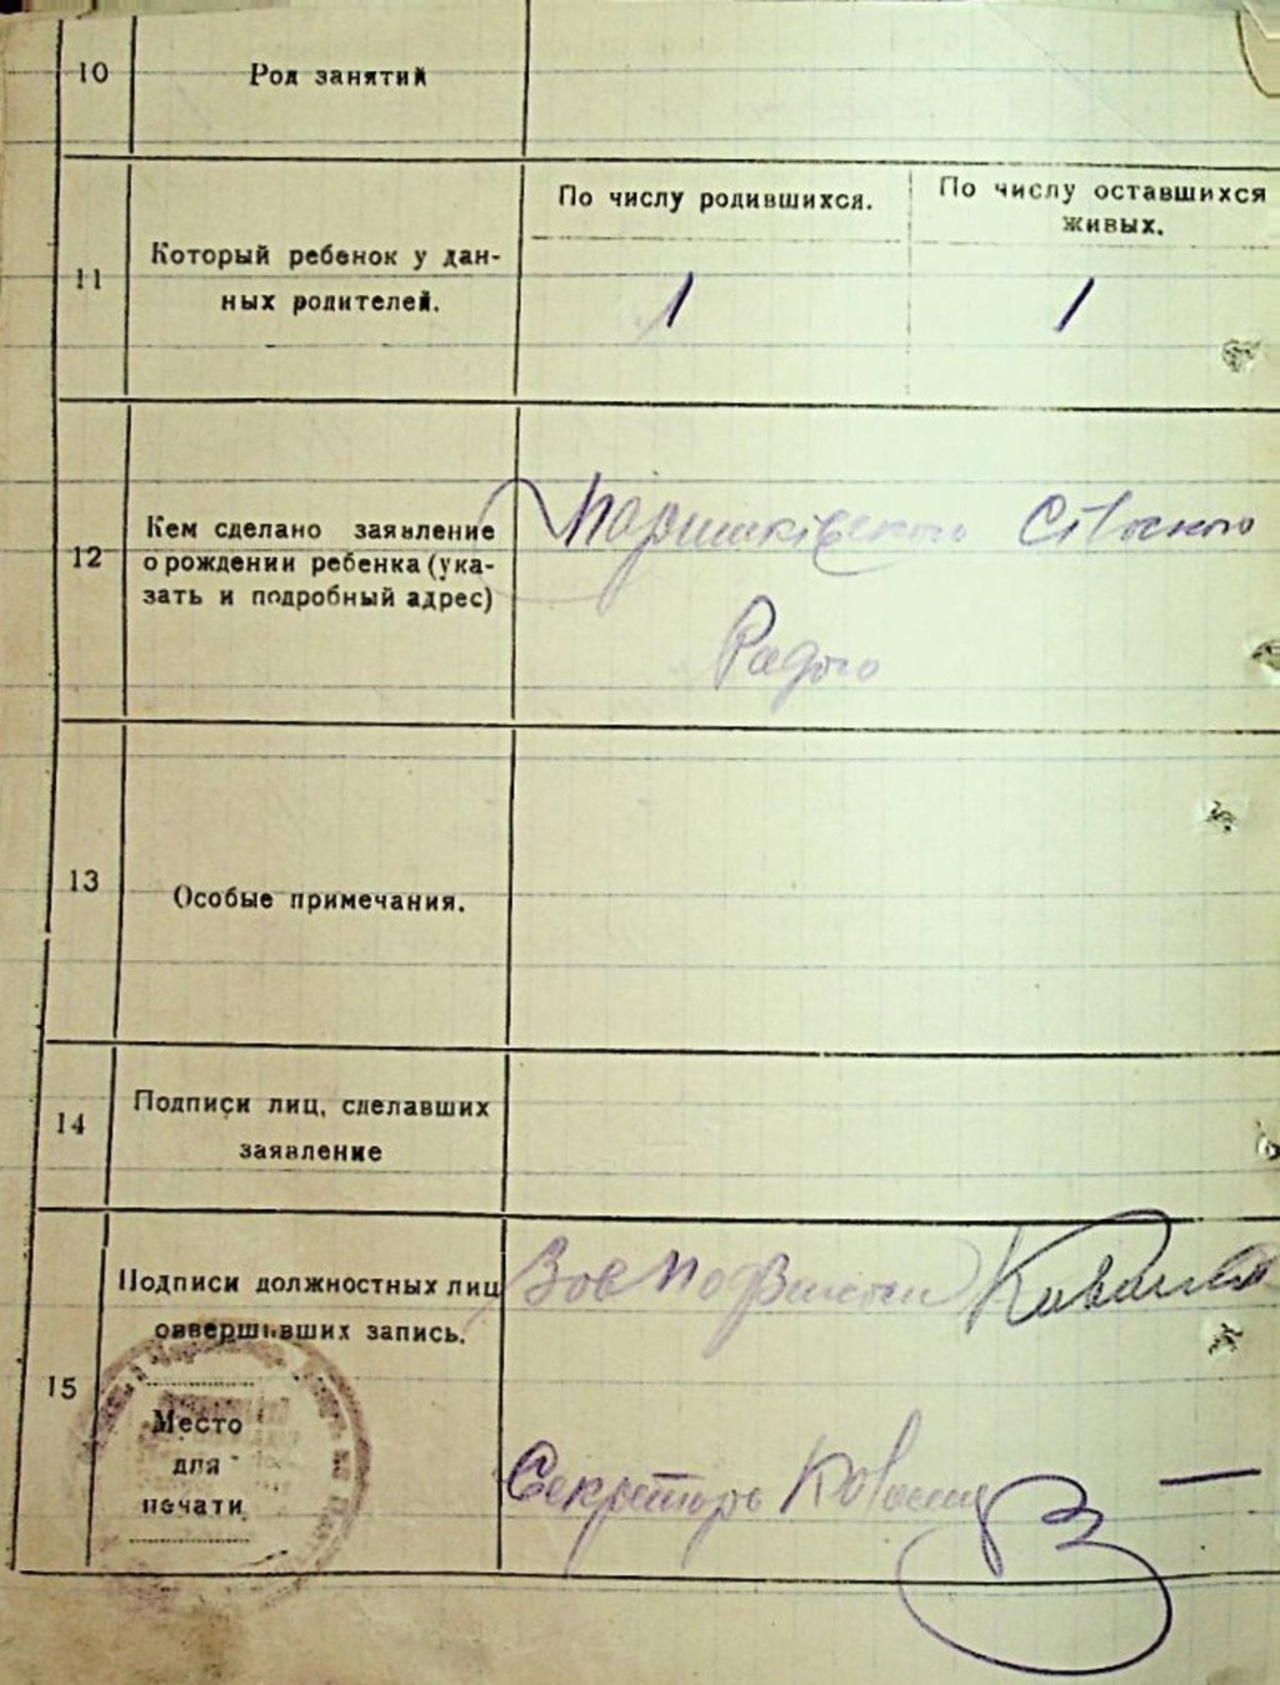 10
Род занятий
11
Который ребенок у дан-
ных родителей.
По числу родившихся.
По числу оставшихся
живых.
1
1
12
Кем сделано заявление
о рождении ребенка (ука-
зать и подробный адрес)
Радою
13
Особые примечания.
14
Подписи лиц, сделавших
заявление
15
Подписи должностных лиц
совершивших запись.
Место
для
печати
Секретарь